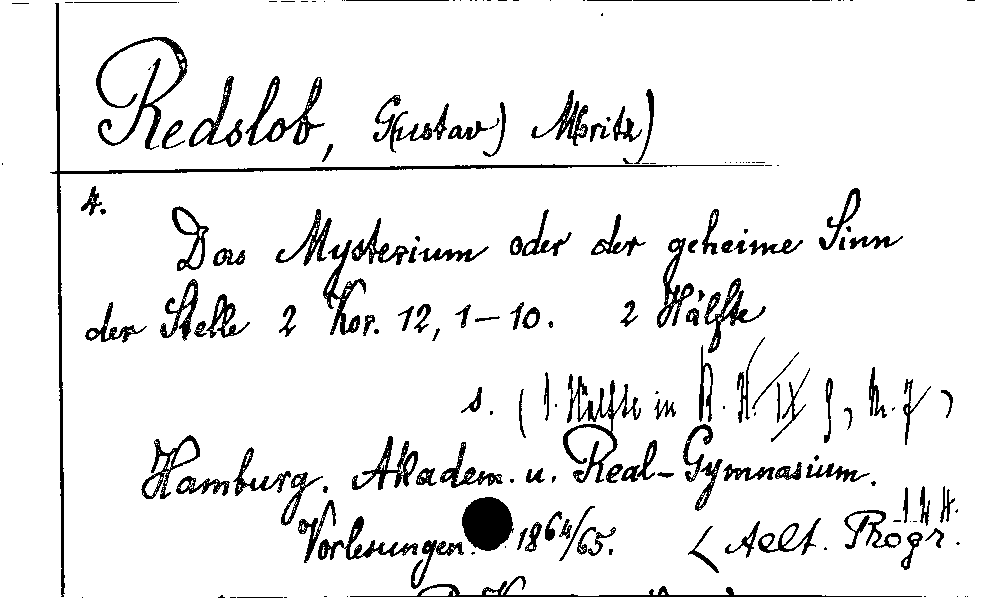 Redslob, G(ustav) M(oritz)
4.
Das Mysterium oder der geheime Sinn
der Stelle 2 Kor. 12, 1-10. 2 Hälfte
s. (1. Hälfte in
Hamburg. Akadem. u. Real-Gymnasium.
Vorlesungen. 1864/65. < Aelt. Progr.